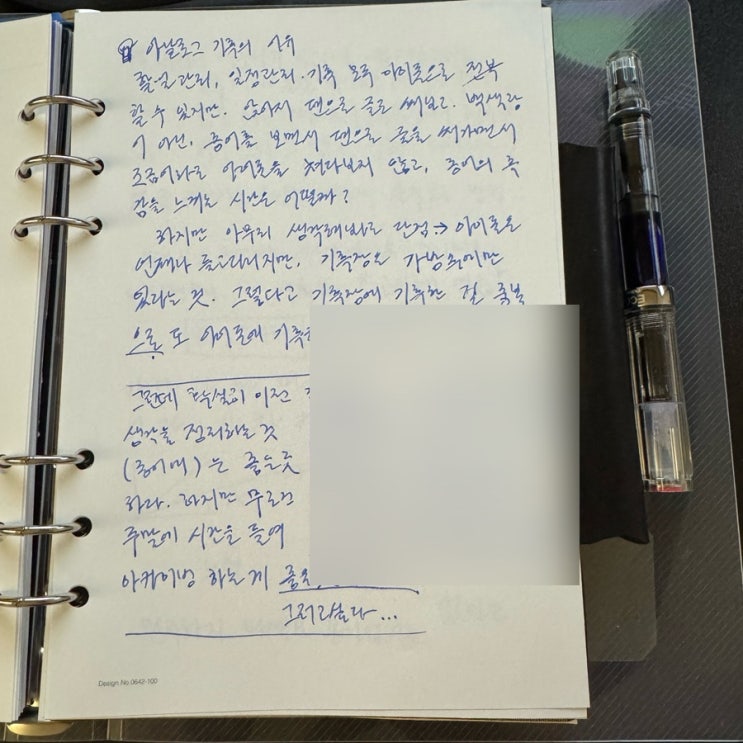 아날로그 기록의 이유
할일관리, 일정관리·기록 모두 아이폰으로 전부
할 수 있지만. 앉아서 펜으로 글로 써보고. 백색광
이 아닌, 종이를 보면서 펜으로 글을 써가면서
조금이라도 아이폰을 쳐다보지 않고, 종이의 촉
감을 느끼는 시간은 어떨까?
하지만 아무리 생각해봐도 단점 → 아이폰은
언제나 들고다니지만, 기록장은 가방 속에만
있다는 것. 그렇다고 기록장에 기록한 걸 중복
으로 또 아이폰에
그런데 확실히 이런
생각을 정리하는 것
(종이에)는 좋은듯
하다. 하지만 무조건
주말에 시간을 들여
아카이빙 하는게
그러고싶다...
Design No.0642-100